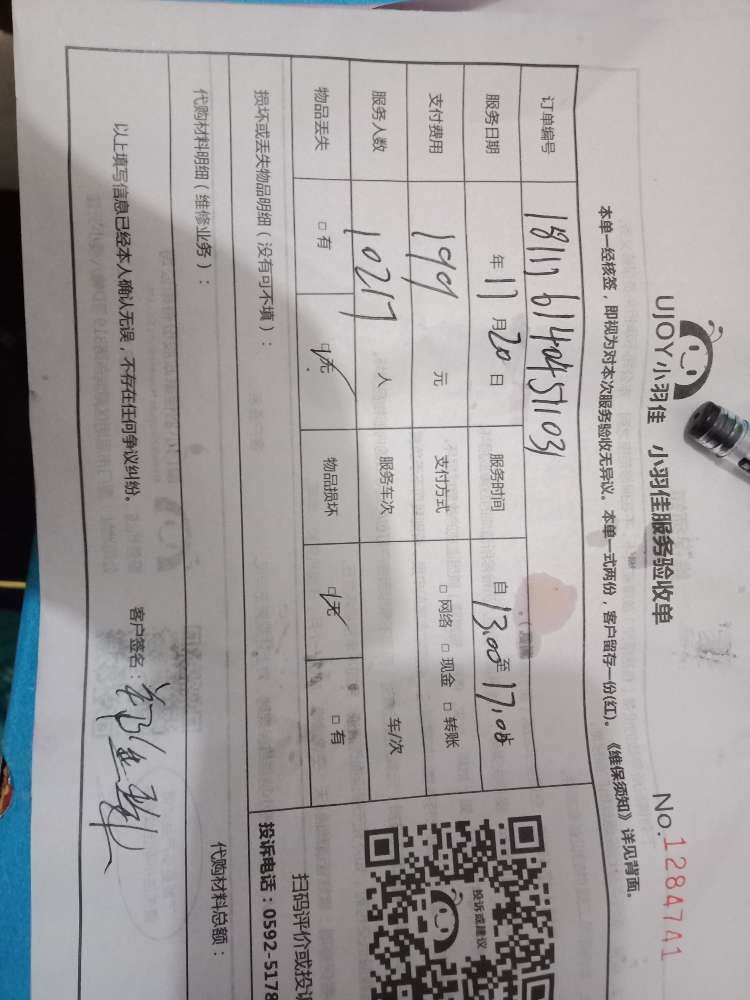 UJOY小羽佳 小羽佳服务验收单
No.1284741
本单一经核签，即视为对本次服务验收无异议。本单一式两份，客户留存一份(红)。《维保须知》详见背面。
订单编号
服务日期 年 11 月 20 日 服务时间 自 13.00 至 17.00
支付费用 199 元 支付方式 □ 网络 □ 现金 □ 转账
服务人数 10217 人 服务车次 车/次
物品丢失 □ 有 □ 无 物品损坏 □ 无 □ 有
损坏或丢失物品明细（没有可不填）：
代购材料明细（维修业务）： 代购材料总额：
以上填写信息已经本人确认无误，不存在任何争议纠纷。 客户签名：
投诉或建议
扫码评价或投
投诉电话：0592-5178